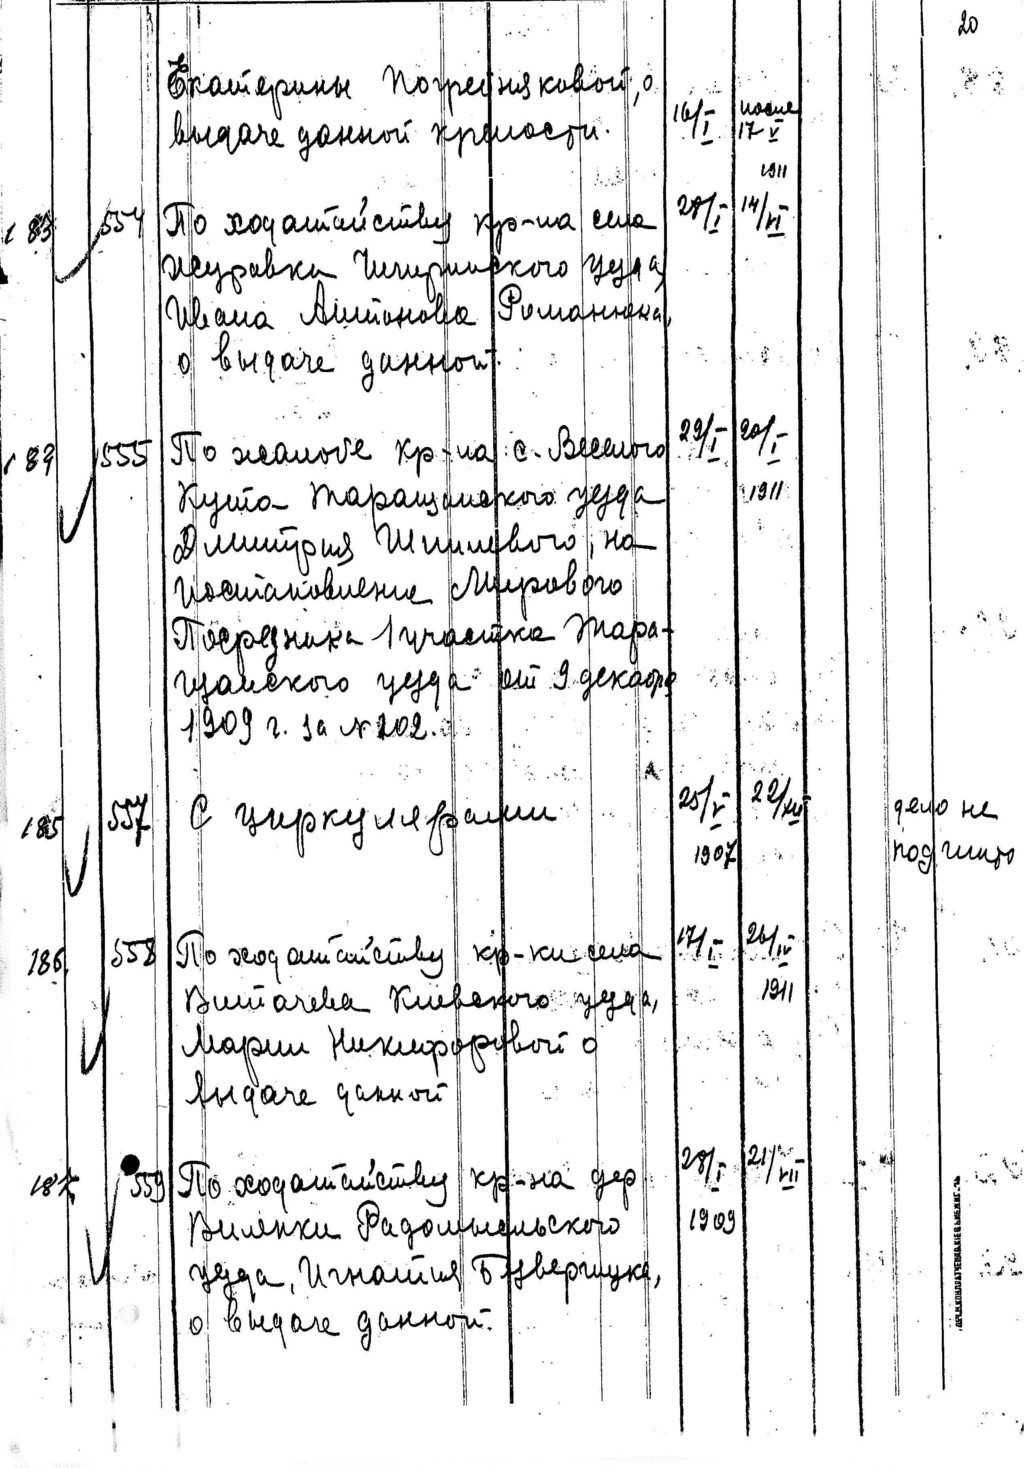 20
Екатерины Погрейняковой, о
выдаче данной крепости.
16/I
после
17 V
1911
183
554
По ходатайству кр-на села
Журавки Чигиринского уезда,
Ивана Антонова Романюка,
о выдаче данной.
28/I
14/VI
555
По жалобе кр-на с. Веселого
Кута Таращанского уезда
Дмитрия Шпилевого, на
постановление Мирового
Посредника 1 участка Тара-
щанского уезда от 9 декабря
1909 г. за № 202.
29/I
20/I
1911
185
557
С циркулярами
25/V
1907
22/XII
дело не
подшито
186
558
По ходатайству кр-ки села
Витачева Киевского уезда,
Марии Никифоровой о
выдаче данной
17/I
26/IV
1911
187
559
По ходатайству кр-на дер
Вилянки Радомысльского
уезда, Игнатия
о выдаче данной.
28/I
1909
21/VII